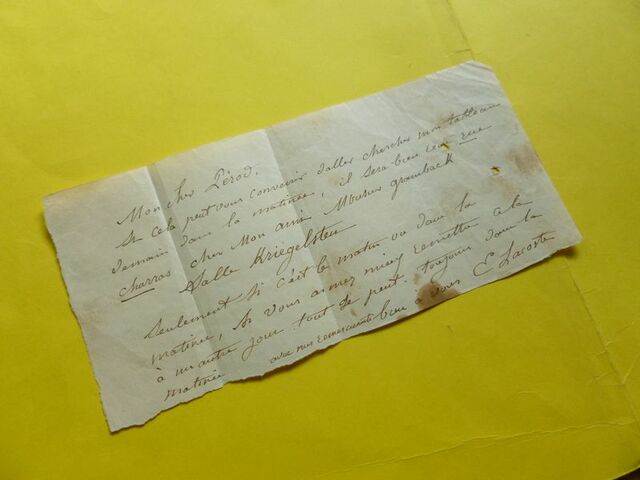 Mon cher Pérod.
Si cela peut vous convenir d'aller chercher mon tableau
demain dans la matinée, il sera bien reçu rue
charras cher Mon ami Monsieur gramback
Salle Kriegelstein
Seulement si c'est le matin ou dans la
matinée, si vous aimez mieux remettre a la
à un autre jour tout se peut. toujours dans la
matinée
avec mes remerciements bien a vous E Lacoste